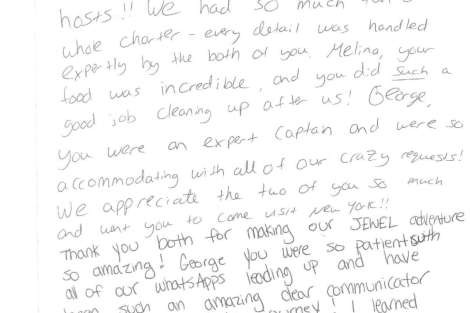 hosts!! We had so much
whole charter - every detail was handled
expertly by the both of you. Melina, your
food was incredible, and you did such a
good job cleaning up after us! George,
you were an expert Captan and were so
accommodating with all of our crazy requests!
We appreciate the two of you so much
and want you to come visit New York!!
Thank you both for making our JEWEL adventure
so amazing! George you were so patient with
all of our whatsApps leading up and have
been such an amazing clear communicator
journey! I learned